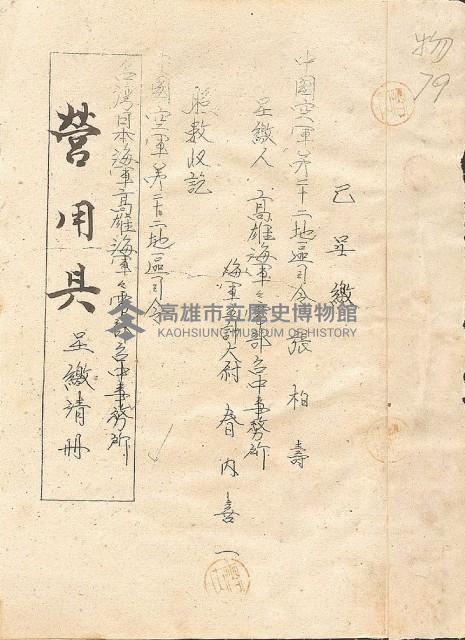 物
79
已呈繳
中國空軍第二十二地區司令張柏壽
呈繳人 高雄海軍々需部台中事務所
海軍主計大尉 春內喜一
照數收訖
中國空軍第二十二地區司令
台灣日本海軍高雄海軍々需部台中事務所
營用具呈繳清冊
高雄市立歷史博物館
KAOHSIUNG MUSEUM OF HISTORY